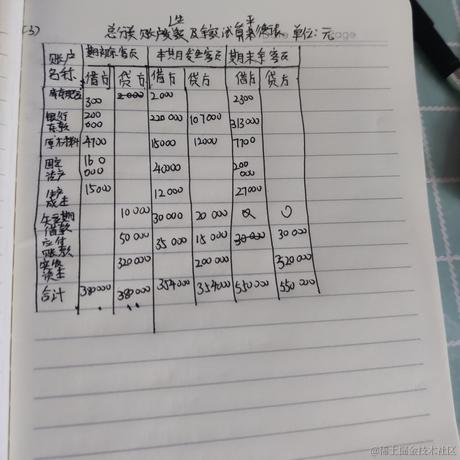 (3)
总分类账户发生额及余额试算平衡表 单位:元
账户名称 期初余额 本期发生额 期末余额
借方 贷方 借方 贷方 借方 贷方
库存现金 300 2000 2300
银行存款 200 000 220 000 107 000 313 000
原材料 4700 15000 12000 7700
固定资产 160 000 40000 200 000
生产成本 15000 12 000 27000
短期借款 10 000 30 000 20 000 0
应付账款 50 000 35 000 15 000 30 000
实收资本 320 000 200 000 520 000
合计 380 000 380 000 354 000 354 000 550 000 550 000
@稀土掘金技术社区